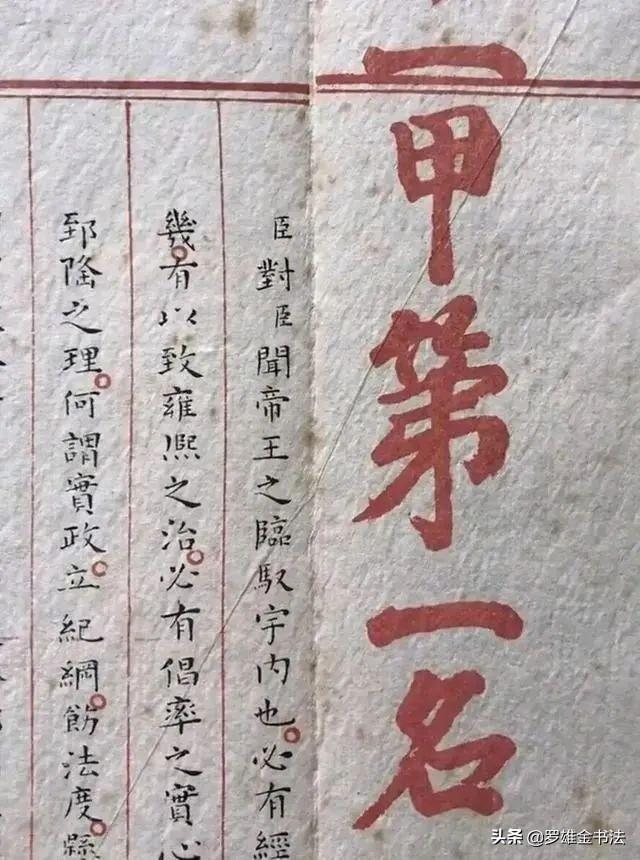 一甲第一名
臣對臣聞帝王之臨馭宇内也。必有經
幾。有以致雍熙之治。必有倡率之實心
郅隆之理。何謂實政。立紀綱。飭法度。懸
头条 @罗雄金书法